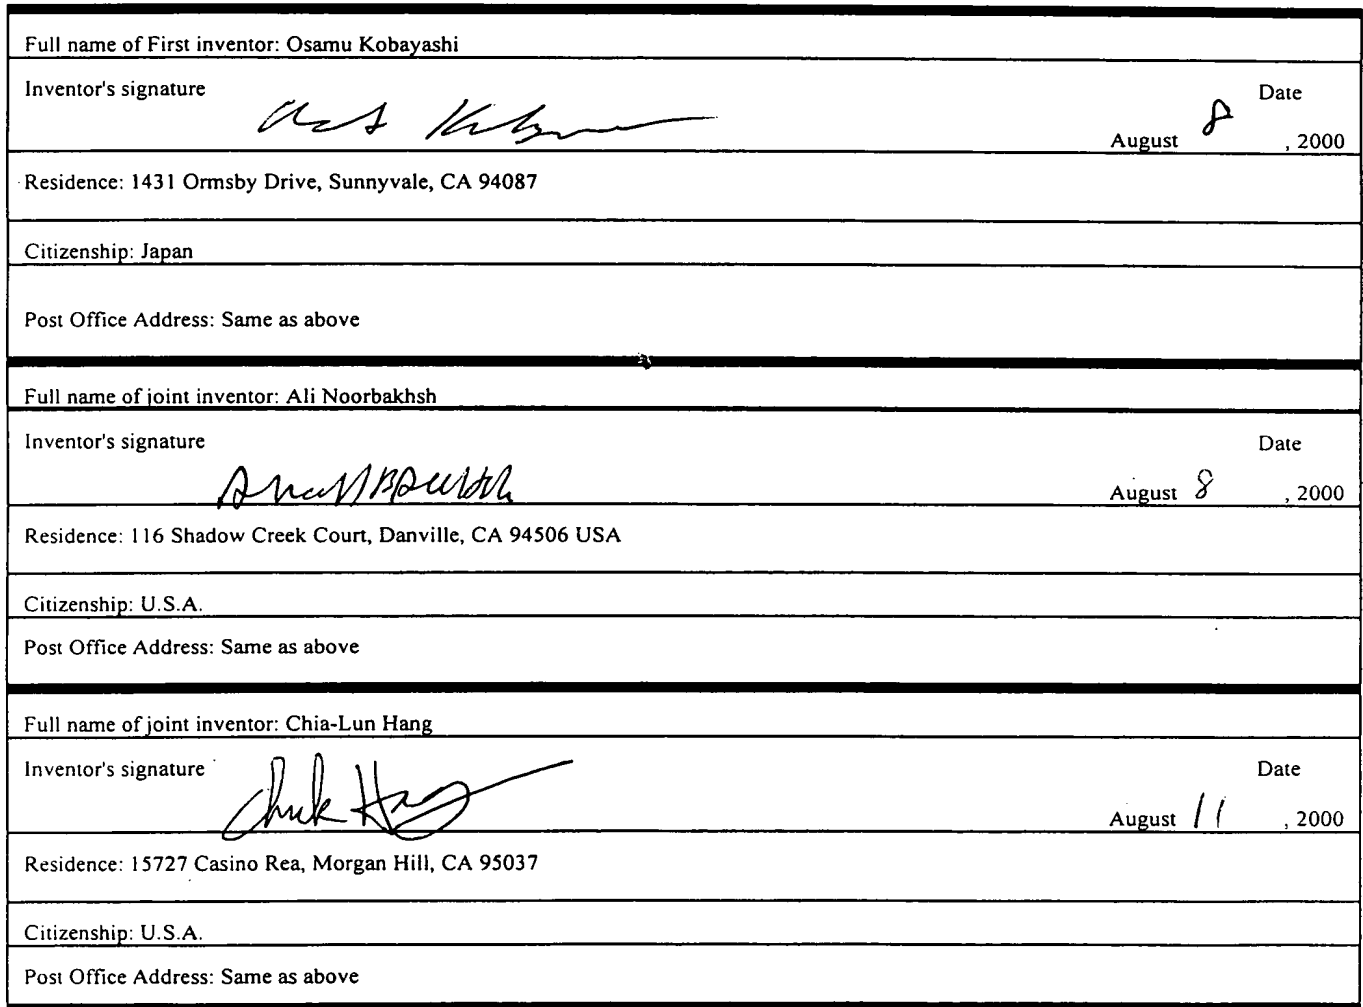 Full name of First inventor: Osamu Kobayashi
Inventor's signature
Date
August 8, 2000
Residence: 1431 Ormsby Drive, Sunnyvale, CA 94087
Citizenship: Japan
Post Office Address: Same as above
Full name of joint inventor: Ali Noorbakhsh
Inventor's signature
Date
August 8, 2000
Residence: 116 Shadow Creek Court, Danville, CA 94506 USA
Citizenship: U.S.A.
Post Office Address: Same as above
Full name of joint inventor: Chia-Lun Hang
Inventor's signature Chuk Hang
Date
August 11, 2000
Residence: 15727 Casino Rea, Morgan Hill, CA 95037
Citizenship: U.S.A.
Post Office Address: Same as above